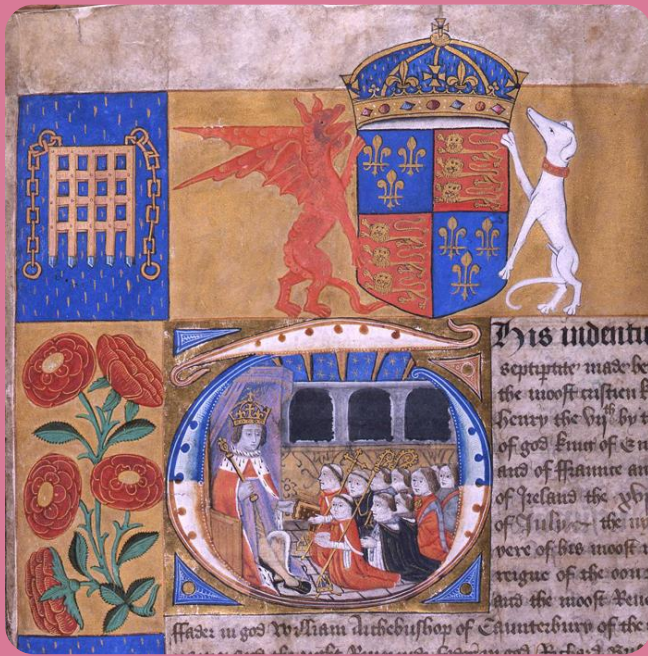 This indentu
septiptite made be
the moost cristien k
henry the vijth by t
of god king of En
and of ffraunce an
of Ireland the xvj
of July the
yere of his moost n
reigne of the oon
and the moost Reve
ffader in god William Archebushop of Caunterbury of the
in god Richard